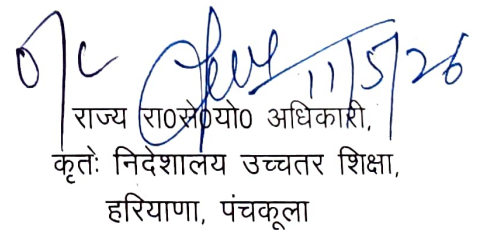 O/C 11/5/26
राज्य रा0से0यो0 अधिकारी,
कृतेः निदेशालय उच्चतर शिक्षा,
हरियाणा, पंचकूला